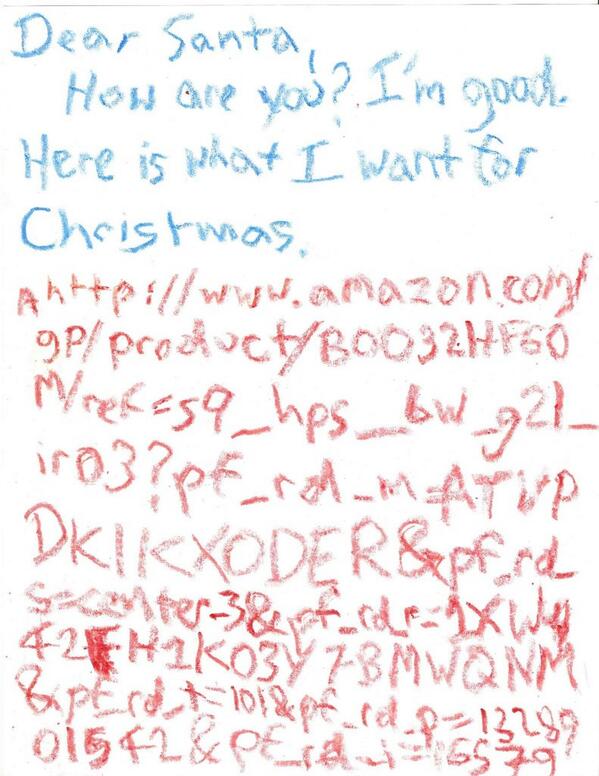 Dear Santa,
How are you? I'm good.
Here is what I want for
Christmas.
A http://www.amazon.com/
gp/product/B0032HF60
M/ref=s9_hps_bw_g21_
ir03?pf_rd_m=ATVP
DKIKXODER&pf_rd_
s=center-3&pf_rd_r=1XWY
42FH1K03Y7BMWQNM
&pf_rd_t=101&pf_rd_p=13289
01542&pf_rd_i=16579